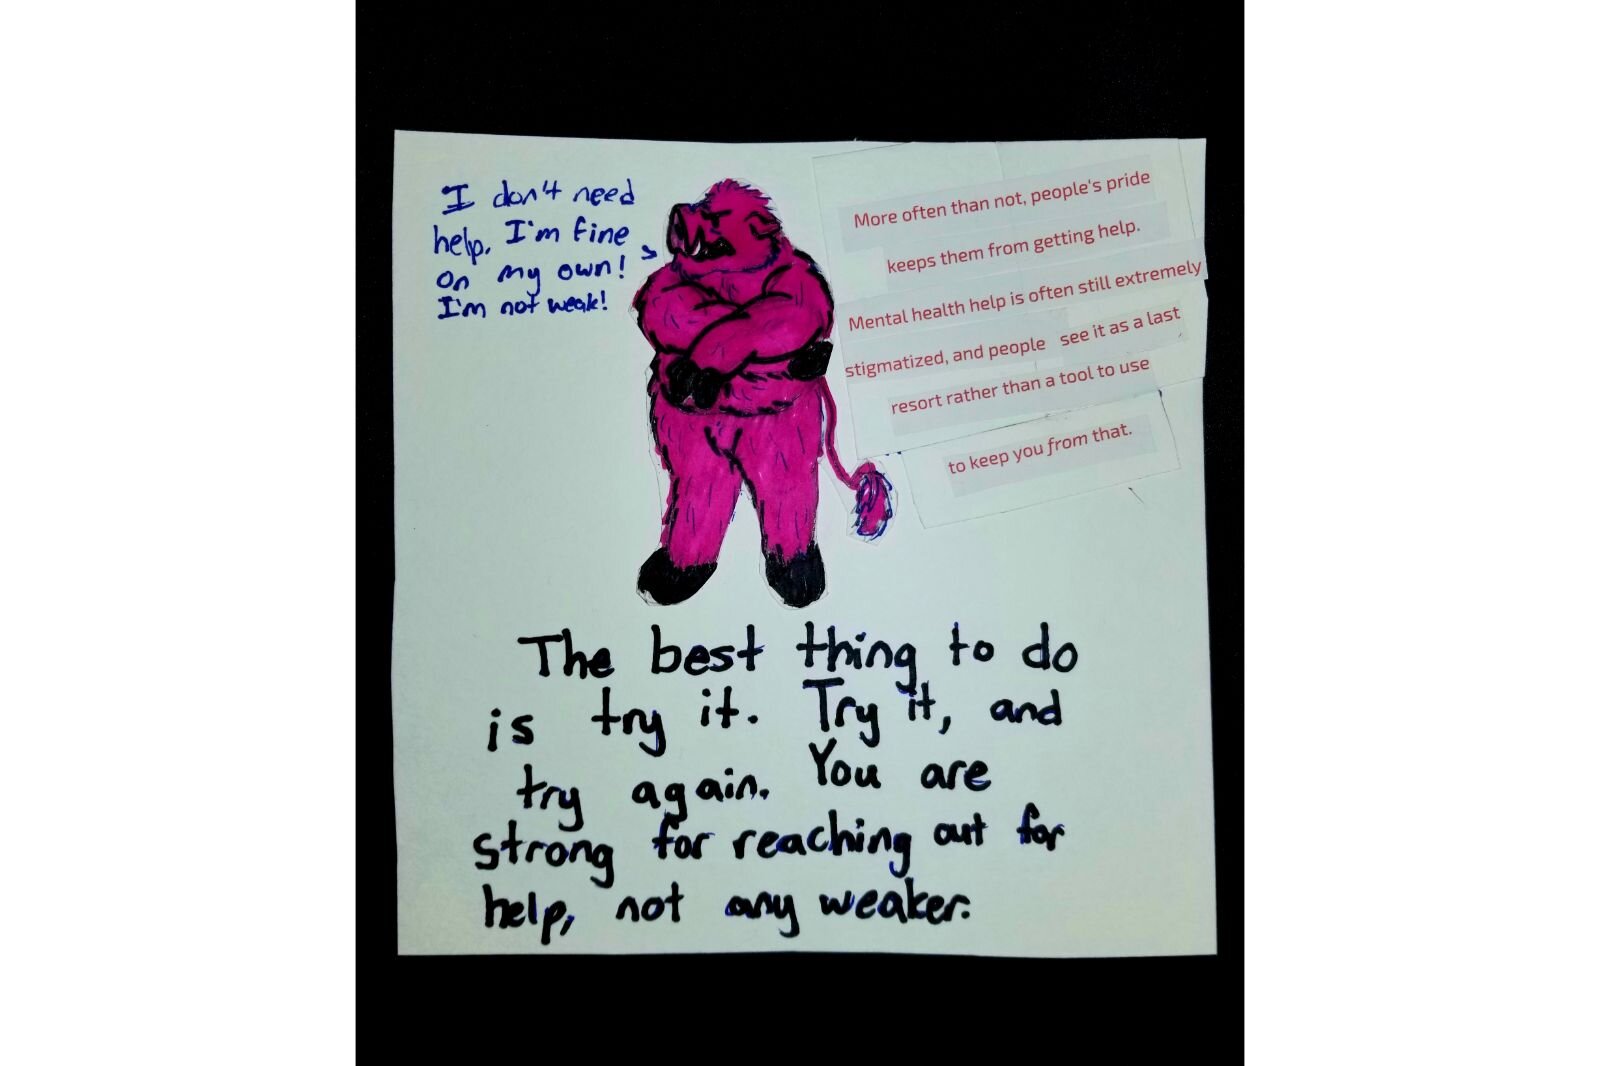 I don't need
help. I'm fine
on my own!
I'm not weak!
More often than not, people's pride
keeps them from getting help.
Mental health help is often still extremely
stigmatized, and people see it as a last
resort rather than a tool to use
to keep you from that.
The best thing to do
is try it. Try it, and
try again. You are
strong for reaching out for
help, not any weaker.